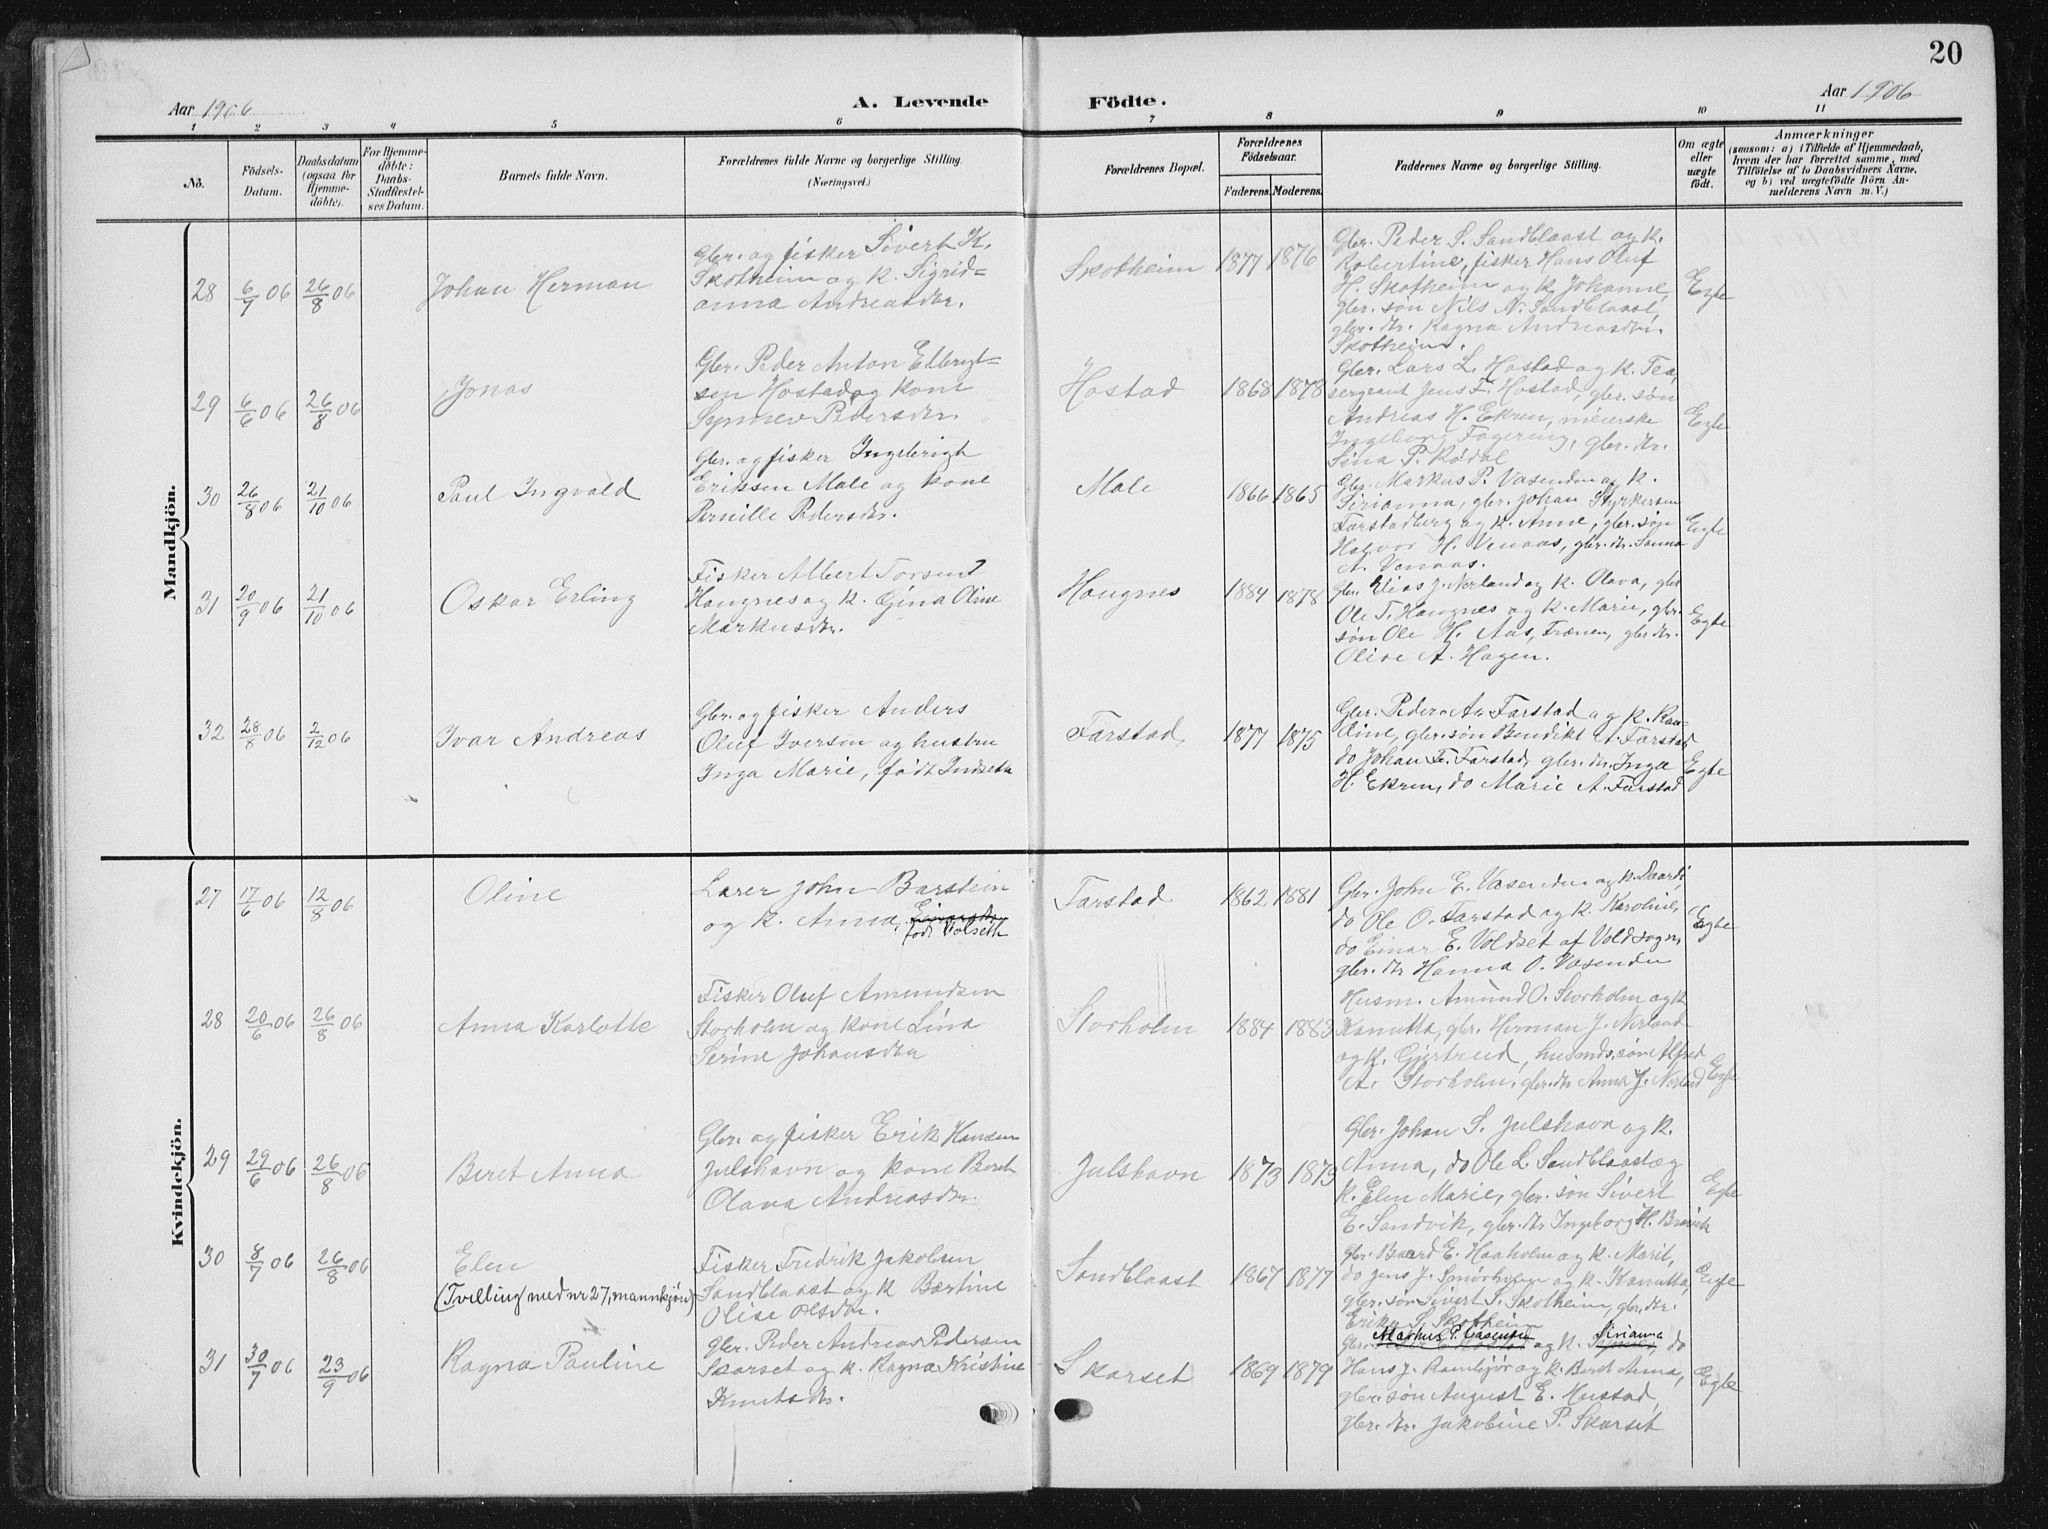 20
Aar 1906
A. Levende
Födte.
Aar 1906
1 2 3 4 5 6 7 8 9 10 11
No.
Födsels-Datum.
Daabsdatum (ogsaa for Hjemme-döbte).
For Hjemme-döbte: Daabs-Stadfæstel-ses Datum.
Barnets fulde Navn.
Forældrenes fulde Navne og borgerlige Stilling.
(Næringsvei.)
Forældrenes Bopæl.
Forældrenes Födselsaar.
Faderens. Moderens.
Faddernes Navne og borgerlige Stilling.
Om ægte eller uægte födt.
Anmærkninger
(saasom: a) i Tilfælde af Hjemmedaab,
hvem der har forrettet samme, med
Tilföielse af to Daabsvidners Navne,
og b) ved uægtefödte Börn An-
melderens Navn m. V.)
Mandkjön.
28 6/7 06 26/8 06 Johan Herman
Gbr. og fisker Sivert K.
Skotheim og k. Sigrid=
anna Andreasdtr.
Skotheim 1877 1876
Gbr. Peder S. Sandblaast og k.
Robertine, fisker Hans Oluf
H. Skotheim og k. Johanne,
gbr. søn Nils N. Sandblaast,
gbr. dtr. Ragna Andreasdtr.
Skotheim.
Egte
29 6/6 06 26/8 06 Jonas
Gbr. Peder Anton Elbrigt=
sen Hostad og kone
Synnev Pedersdtr.
Hostad 1868 1878
Gbr. Lars L. Hostad og k. Tea,
sergeant Jens F. Hostad, gbr. søn
Andreas H. Ekren, meierske
Ingeborg Fagereng, gbr. dtr.
Sina P. Rødal
Egte
30 26/8 06 21/10 06 Paul Ingvald
Gbr. og fisker Ingebrigt
Eriksen Male og kone
Pernille Pedersdtr.
Male 1866 1865
Gbr. Markus P. Vasenden og k.
Sirianna, gbr. Johan Styrkersen
Farstadberg og k. Anne, gbr. søn
Halvor H. Venaas, gbr. dtr. Sanna
A. Venaas.
Egte
31 20/9 06 21/10 06 Oskar Erling
Fisker Albert Torsen
Haugnes og k. Gina Oline
Markusdtr.
Haugnes 1884 1878
Gbr. Elias J. Nerland og k. Olava, gbr
Ole T. Haugnes og k. Marie, gbr.
søn Ole H. Aas, Frænen, gbr. dtr.
Olive A. Hagen.
Egte
32 28/8 06 2/12 06 Ivar Andreas
Gbr. og fisker Anders
Oluf Iversen og hustru
Inga Marie, født Indseth
Farstad 1877 1875
Gbr. Peder A. Farstad og k. Kan-
line, gbr. søn Bendikt A. Farstad
do Johan F. Farstad, gbr. dtr. Inga
H. Ekren, do Marie A. Farstad
Egte
Kvindekjön.
27 17/6 06 12/8 06 Oline
Lærer John Barstein
og k. Anna, Einarsdtr.
født Volseth
Farstad 1862 1881
Gbr. John E. Vasenden og k. Laardi,
do Ole O. Farstad og k. Karoline,
do Einar E. Voldset af Voldsogn,
gbr. dtr Hanna O. Vasenden
Egte
28 20/6 06 26/8 06 Anna Karlotte
Fisker Oluf Amundsen
Storholm og kone Lina
Serine Johansdtr
Storholm 1884 1883
Husm. Amund O. Storholm og k
Kanutta, gbr. Herman J. Nerland
og k. Gjertrud, husmds. søn Alfred
A. Storholm, gbr. dtr Anna J. Nerland
Egte
29 29/6 06 26/8 06 Beret Anna
Gbr. og fisker Erik Hansen
Julshavn og kone Beret
Olava Andreasdtr.
Julshavn 1873 1873
Gbr. Johan S. Julshavn og k.
Anna, do Ole L. Sandblaast og
k. Elen Marie, gbr. søn Sivert
E. Sandvik, gbr. dtr Ingeborg H. Breivik
Egte
30 8/7 06 26/8 06 Elen
(Tvilling med nr 27, mannkjøn)
Fisker Fredrik Jakobsen
Sandblaast og k Bertine
Olise Olsdtr.
Sandblaast 1867 1877
Gbr. Baard E. Haaholm og k. Marit,
do Jens J. Smørholm og k. Kanutta,
gbr. søn Sivert S. Skotheim, gbr. dtr.
Erika S. Skotheim
Egte
31 30/7 06 23/9 06 Ragna Pauline
Gbr. Peder Andreas Pedersen
Skarset og k. Ragna Kristine
Knutsdtr.
Skarset 1869 1879
Markus P. Vasenden Sirianna
Gbr. og k. do
Hans J. Rambjør og k. Beret Anna,
gbr. søn August E. Hustad,
gbr. dtr. Jakobine P. Skarset
Egte